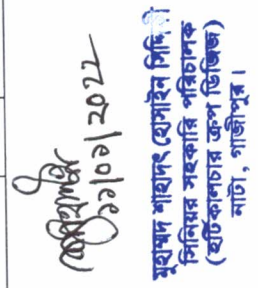 ১১/০১/২০২২
মুহাম্মদ শাহাদৎ হোসাইন সিদ্দি
সিনিয়র সহকারি পরিচালক
(হর্টিকালচার ক্রপ ডিজিজ)
নাটা, গাজীপুর।